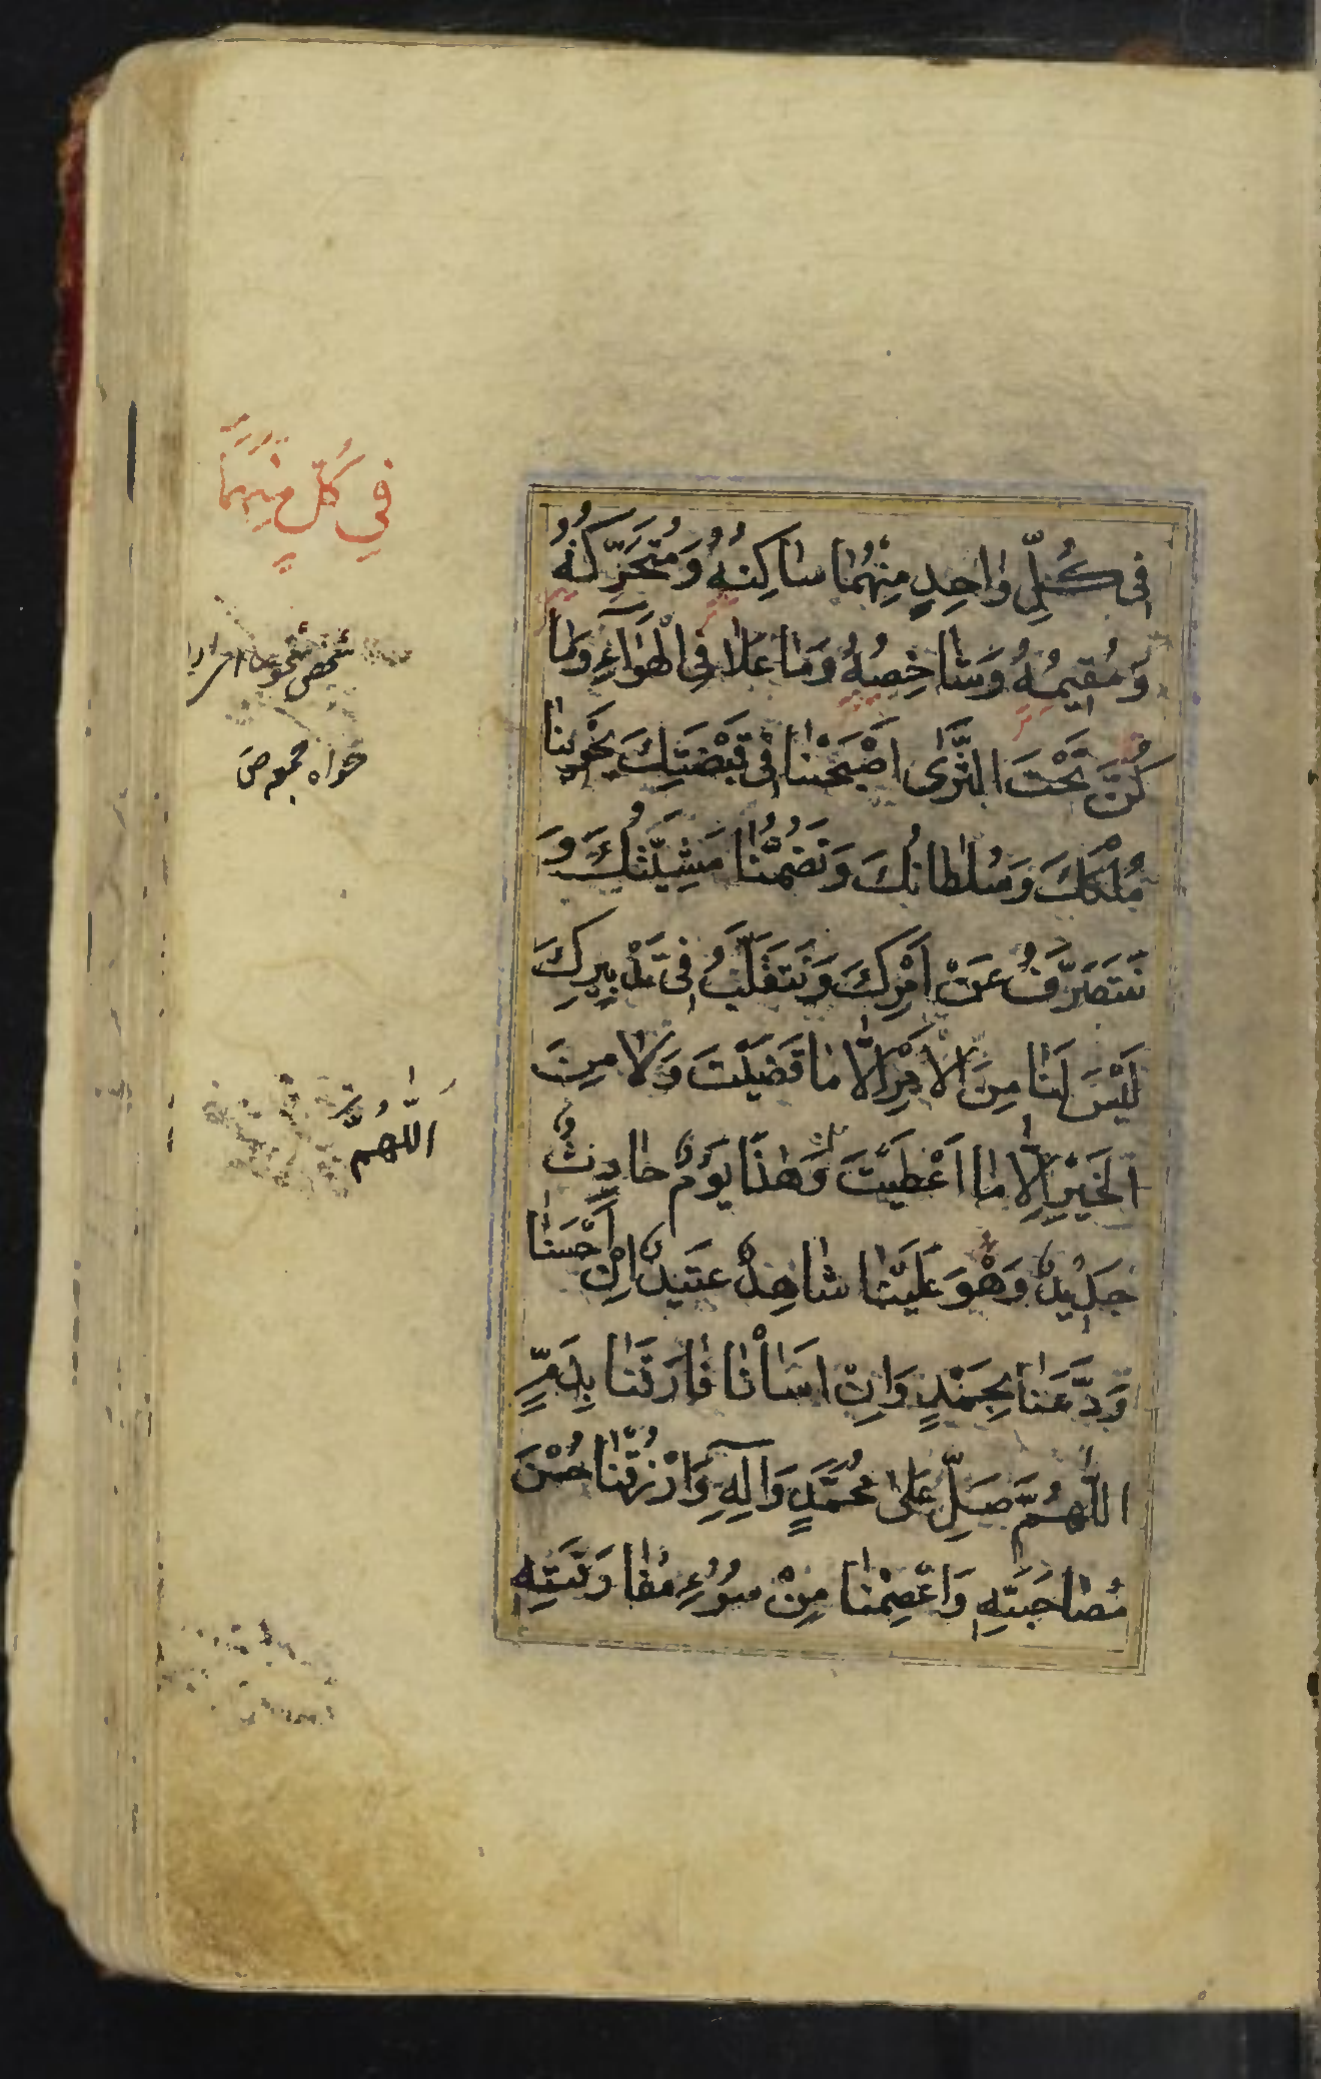 فِى كُلِّ وٰاحِدٍ مِنْهُمٰا سٰاكِنُهُ وَمُتَحَرِّكُهُ
وَمُقِيمُهُ وَشٰاخِصُهُ وَمٰا عَلٰا فِى الْهَوٰآءِ وَمٰا
كَنَّ تَحْتَ الثَّرٰى اَصْبَحْنٰا فِى قَبْضَتِكَ يَحْوِينٰا
مُلْكُكَ وَسُلْطٰانُكَ وَتَضُمُّنٰا مَشِيَّتُكَ وَ
نَتَصَرَّفُ عَنْ اَمْرِكَ وَنَتَقَلَّبُ فِى تَدْبِيرِكَ
لَيْسَ لَنٰا مِنَ الْاَمْرِ اِلّٰا مٰا قَضَيْتَ وَلٰا مِنَ
الْخَيْرِ اِلّٰا مٰا اَعْطَيْتَ وَهٰذٰا يَوْمٌ حٰادِثٌ
جَدِيدٌ وَهْوَ عَلَيْنٰا شٰاهِدٌ عَتِيدٌ اِنْ اَحْسَنّٰا
وَدَّعَنٰا بِحَمْدٍ وَاِنْ اَسَأْنٰا فٰارَقَنٰا بِذَمٍّ
اللّٰهُمَّ صَلِّ عَلٰى مُحَمَّدٍ وَآلِهِ وَارْزُقْنٰا حُسْنَ
مُصٰاحَبَتِهِ وَاعْصِمْنٰا مِنْ سُوءِ مُفٰارَقَتِهِ
فِي كُلٍّ مِنْهُمَا
اللّٰهُمَّ